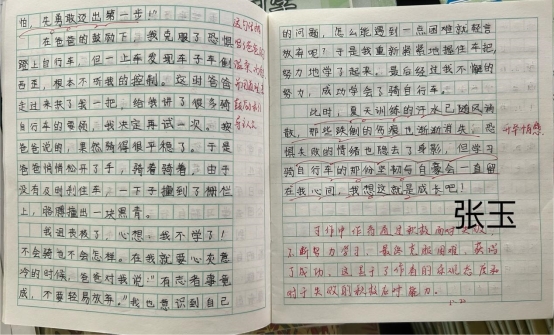 怕，先勇敢迈出第一步！”
在爸爸的鼓励下，我克服了恐惧
蹬上自行车，但一上车发现车子左倒
西歪，根本不听我的控制。这时爸爸
走过来扶了我一把，给我讲了很多骑
自行车的要领，我决定再试一次。按
爸爸说的，果然骑得很平稳了。于是
爸爸悄悄松开了手，骑着骑着，由于
没有及时刹住车，一下子撞到了栅栏
上，胳膊撞出一块黑青。
我沮丧极了，心想：我不学了！
不会骑也不会怎样。在我就要心灰意
冷的时候，爸爸对我说：“有志者事竟
成，不要轻易放弃。”我也意识到自己
的问题，怎么能遇到一点困难就轻言
放弃呢？于是我重新紧紧地握住车把，
努力地学了起来。最后经过我不懈的
努力，成功学会了骑自行车。
此时，夏天训练的汗水已随风消
散，那些跌倒的伤痕也渐渐消失，恐
惧失败的情绪也隐去了身影，但学习
骑自行车的那份坚韧与自豪会一直留
在我心间，我想这就是成长吧！
张玉
升华情感
习作中作者通过积极面对失败，
不断努力学习，最终克服困难，获得
了成功。这显示了作者的乐观态度和
对于失败的积极应对能力。